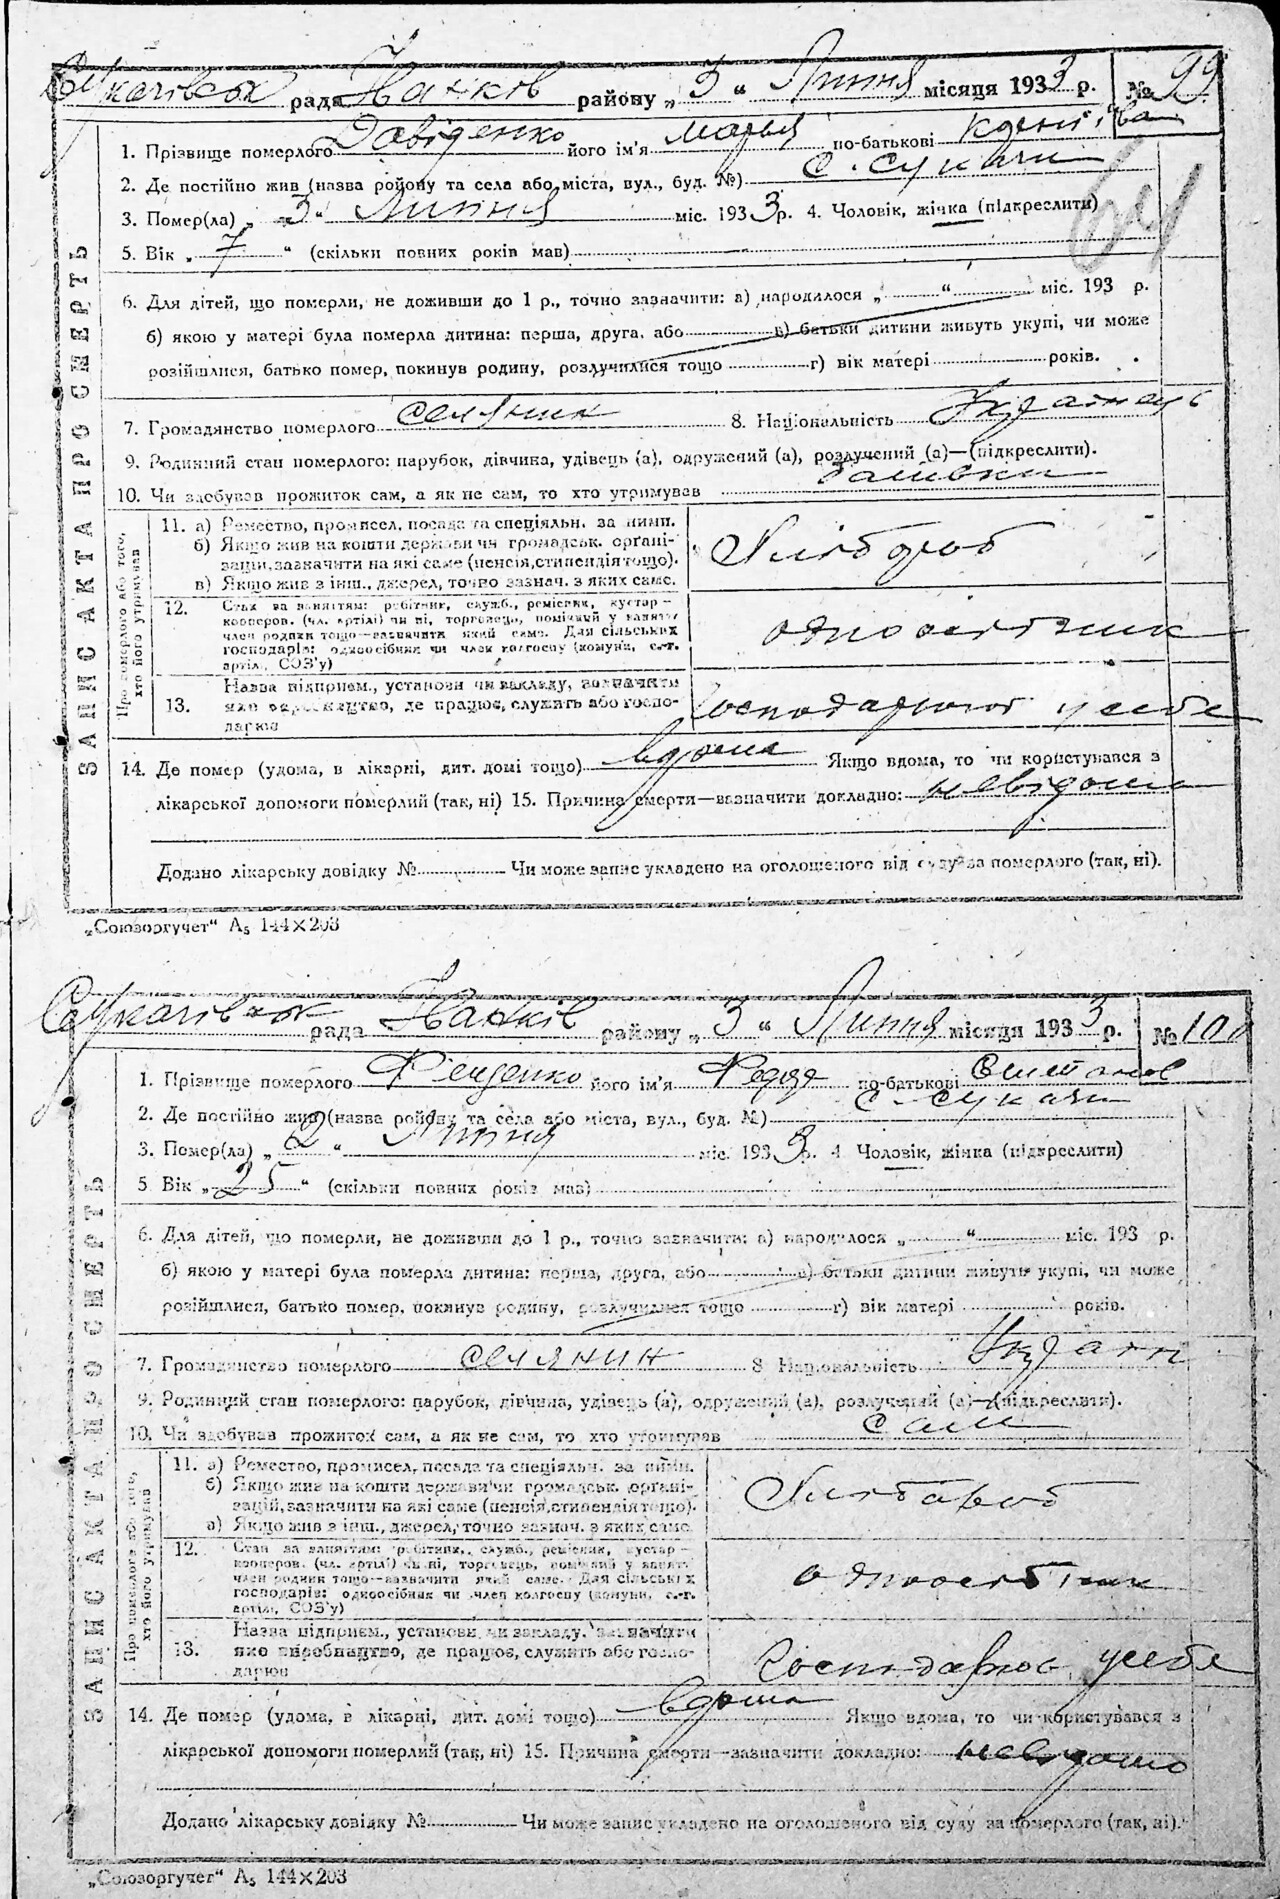 рада Ханків району „ 3 “ Липня місяця 1933 р. № 99
1. Прізвище померлого Давіденко його ім'я Марья по-батькові
2. Де постійно жив (назва ройону та села або міста, вул., буд. №) с. Сукачи
3. Помер(ла) „ 3 “ Липня міс. 1933 р. 4. Чоловік, жінка (підкреслити)
64
5. Вік „ 7 “ (скільки повних років мав)
6. Для дітей, що померли, не доживши до 1 р., точно зазначити: а) народилося „ “ міс. 193 р.
б) якою у матері була померла дитина: перша, друга, або в) батьки дитини живуть укупі, чи може
розійшлися, батько помер, покинув родину, розлучилися тощо г) вік матері років.
7. Громадянство померлого селянин 8. Національність Українець
9. Родинний стан померлого: парубок, дівчина, удівець (а), одружений (а), розлучений (а)—(підкреслити).
10. Чи здобував прожиток сам, а як не сам, то хто утримував
ЗАПИС АКТА ПРО СМЕРТЬ
Про померлого або того, хто його утримував
11. а) Ремество, промисел, посада та спеціяльн. за ними.
б) Якщо жив на кошти держави чи громадськ. органі-
зацій, зазначити на які саме (пенсія, стипендія тощо).
в) Якщо жив з інш., джерел, точно зазнач. з яких саме.
Хлібороб
12. Стан за заняттям: робітник, служб., ремісник, кустар—
кооперов. (чл. артілі) чи ні, торговець, помічний у занятті
член родини тощо—зазначити який саме. Для сільських
господарів: одноосібник чи член колгоспу (комуни, с.-г.
артілі, СОЗ'у)
одноосібник
13. Назва підприєм., установи чи закладу, зазначити
яке виробництво, де працює, служить або госпо-
дарює
у себе
14. Де помер (удома, в лікарні, дит. домі тощо) вдома Якщо вдома, то чи користувався з
лікарської допомоги померлий (так, ні) 15. Причина смерти—зазначити докладно: невідома
Додано лікарську довідку № Чи може запис укладено на оголошеного від суду за померлого (так, ні).
„Союзоргучет“ А5 144×203
рада Ханків району „ 3 “ Липня місяця 1933 р. № 100
1. Прізвище померлого його ім'я по-батькові
2. Де постійно жив (назва ройону та села або міста, вул., буд. №) с. Сукачи
3. Помер(ла) „ 2 “ Липня міс. 1933 р. 4 Чоловік, жінка (підкреслити)
5 Вік „ 25 “ (скільки повних років мав)
6. Для дітей, що померли, не доживши до 1 р., точно зазначити: а) народилося „ “ міс. 193 р.
б) якою у матері була померла дитина: перша, друга, або в) батьки дитини живуть укупі, чи може
розійшлися, батько помер, покинув родину, розлучилися тощо г) вік матері років.
7. Громадянство померлого селянин 8 Національність
9. Родинний стан померлого: парубок, дівчина, удівець (а), одружений (а), розлучений (а)—(підкреслити).
10. Чи здобував прожиток сам, а як не сам, то хто утримував сам
ЗАПИС АКТА ПРО СМЕРТЬ
Про померлого або того, хто його утримував
11. а) Ремество, промисел, посада та спеціяльн. за ними.
б) Якщо жив на кошти держави чи громадськ. органі-
зацій, зазначити на які саме (пенсія, стипендія тощо).
в) Якщо жив з інш., джерел, точно зазнач. з яких саме
12. Стан за заняттям: робітник, служб., ремісник, кустар—
кооперов. (чл. артілі) чи ні, торговець, помічний у занятті
член родини тощо—зазначити який саме. Для сільських
господарів: одноосібник чи член колгоспу (комуни, с.-г.
артілі, СОЗ'у)
одноосібник
13. Назва підприєм., установи чи закладу, зазначити
яке виробництво, де працює, служить або госпо-
дарює
у себе
14. Де помер (удома, в лікарні, дит. домі тощо) вдома Якщо вдома, то чи користувався з
лікарської допомоги померлий (так, ні) 15. Причина смерти—зазначити докладно:
Додано лікарську довідку № Чи може запис укладено на оголошеного від суду за померлого (так, ні).
„Союзоргучет“ А5 144×203